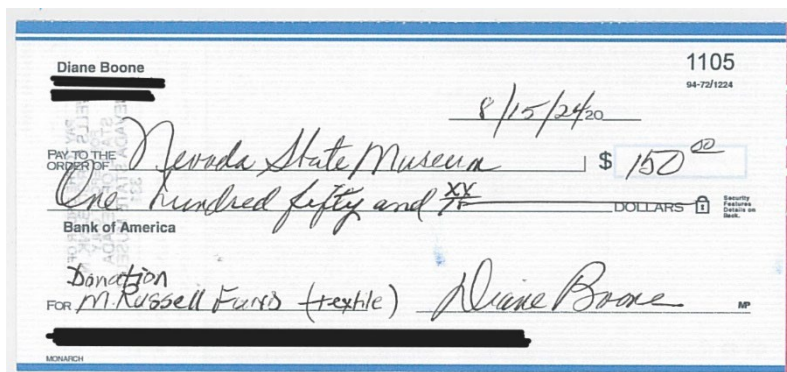 Diane Boone
1105
94-72/1224
8/15/24 20
PAY TO THE ORDER OF Nevada State Museum $ 150 00
One hundred fifty and xx DOLLARS Security Features Details on Back.
Bank of America
Donation
FOR M. Russell Fund (textile) Diane Boone MP
MONARCH